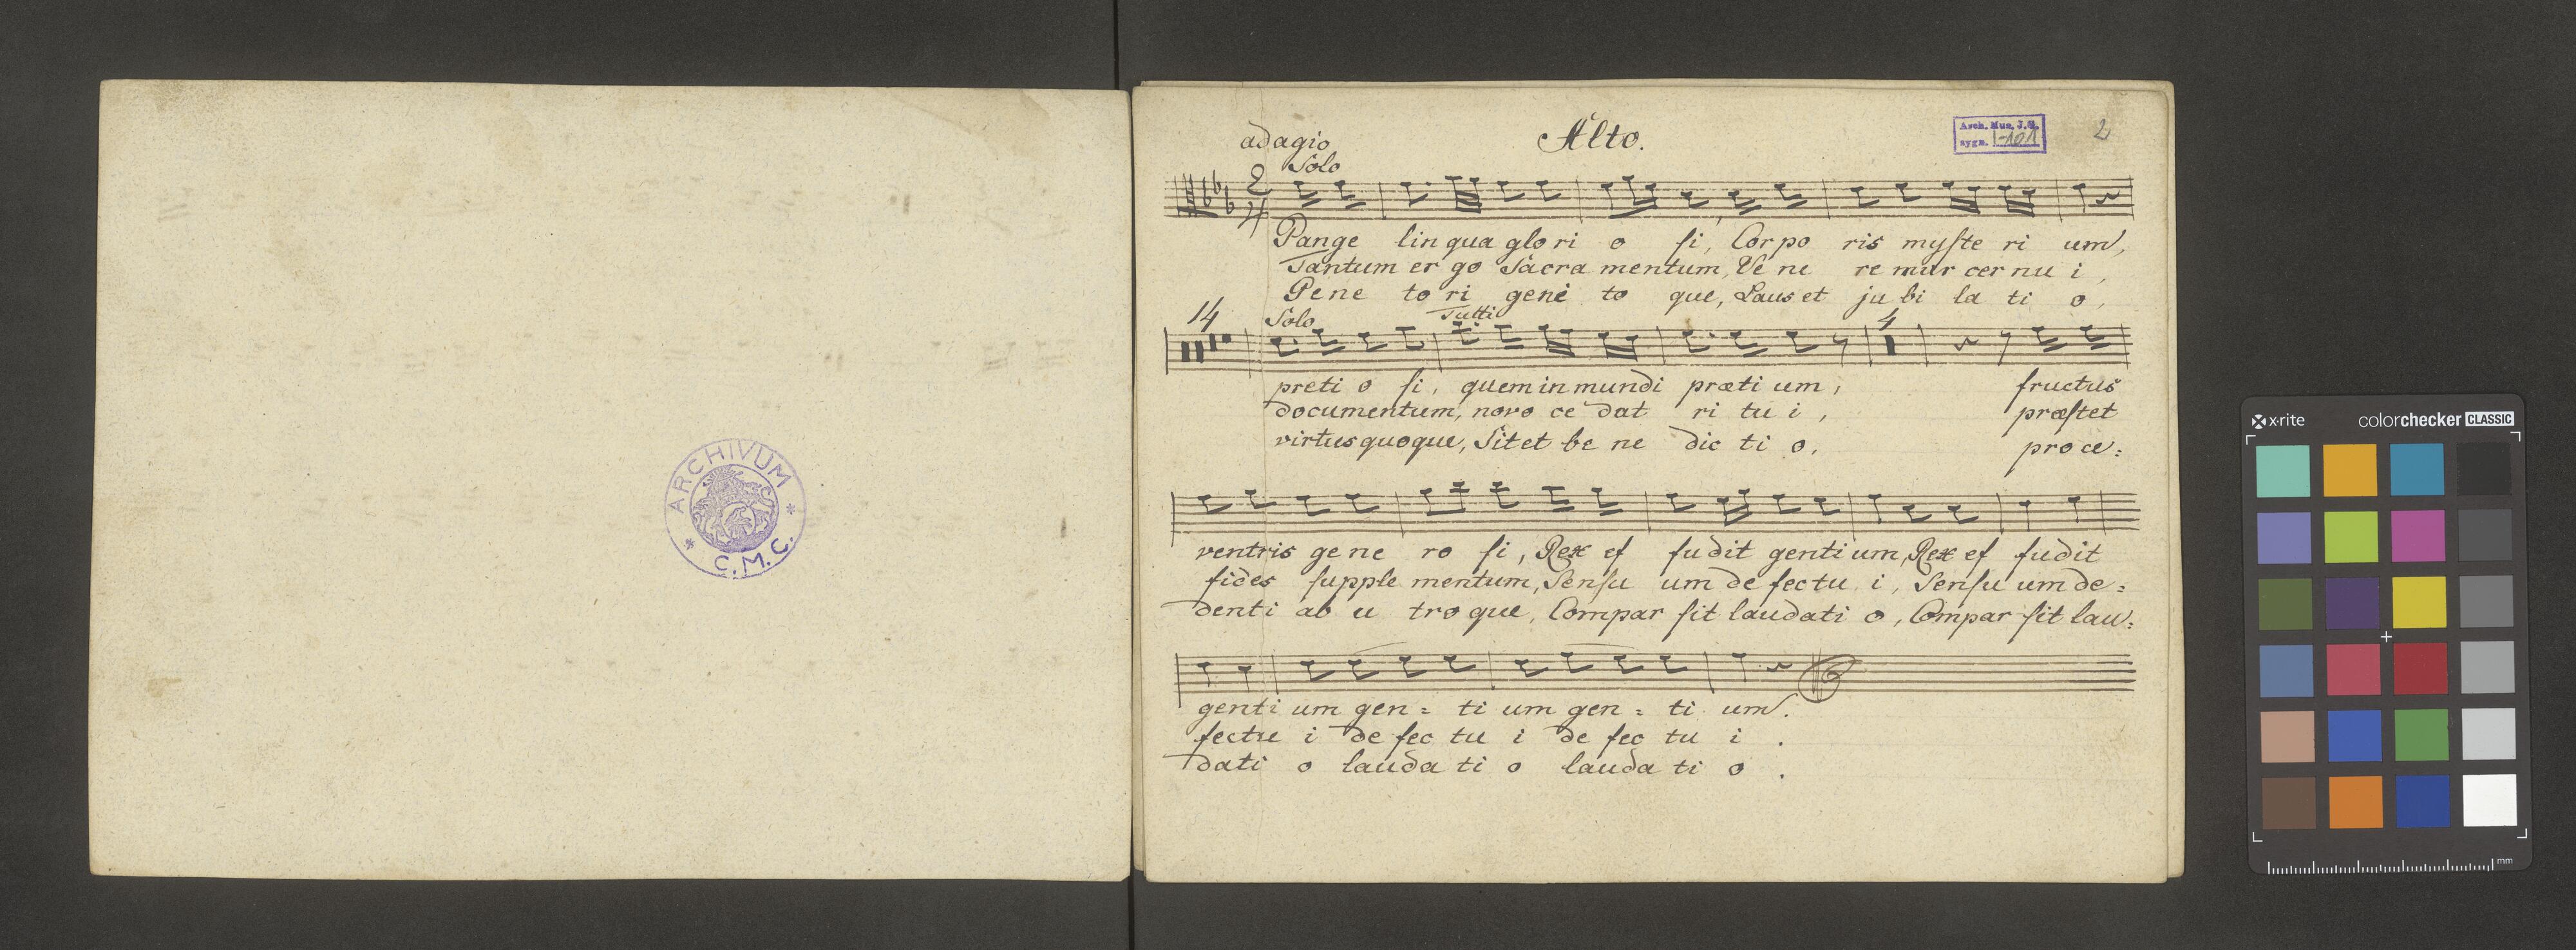 ARCHIVUM
C.M.C.
adagio
Alto.
Arch. Mus. J.G.
sygn. I-101
2
Solo
2
4
Pange lin qua glo ri o ſi, Cor po ris myſte ri um,
Tantum er go Sacra mentum, Ve ne re mur cer nu i,
Gene to ri geni to que, Laus et ju bi la ti o,
14
Solo
Tutti
4
preti o ſi, quem in mundi præti um, fructus
documentum, novo ce dat ri tu i, præſtet
virtus quoque, Sit et be ne dic ti o, pro ce:
ventris ge ne ro ſi, Rex ef fudit genti um, Rex ef fudit
fides ſupple mentum, Senſu um de fectu i, Senſu um de:
denti ab u tro que, Compar ſit laudati o, Compar ſit lau:
genti um gen: ti um gen: ti um.
fectu i de fec tu i de fec tu i.
dati o lauda ti o lauda ti o.
x-rite
colorchecker CLASSIC
mm